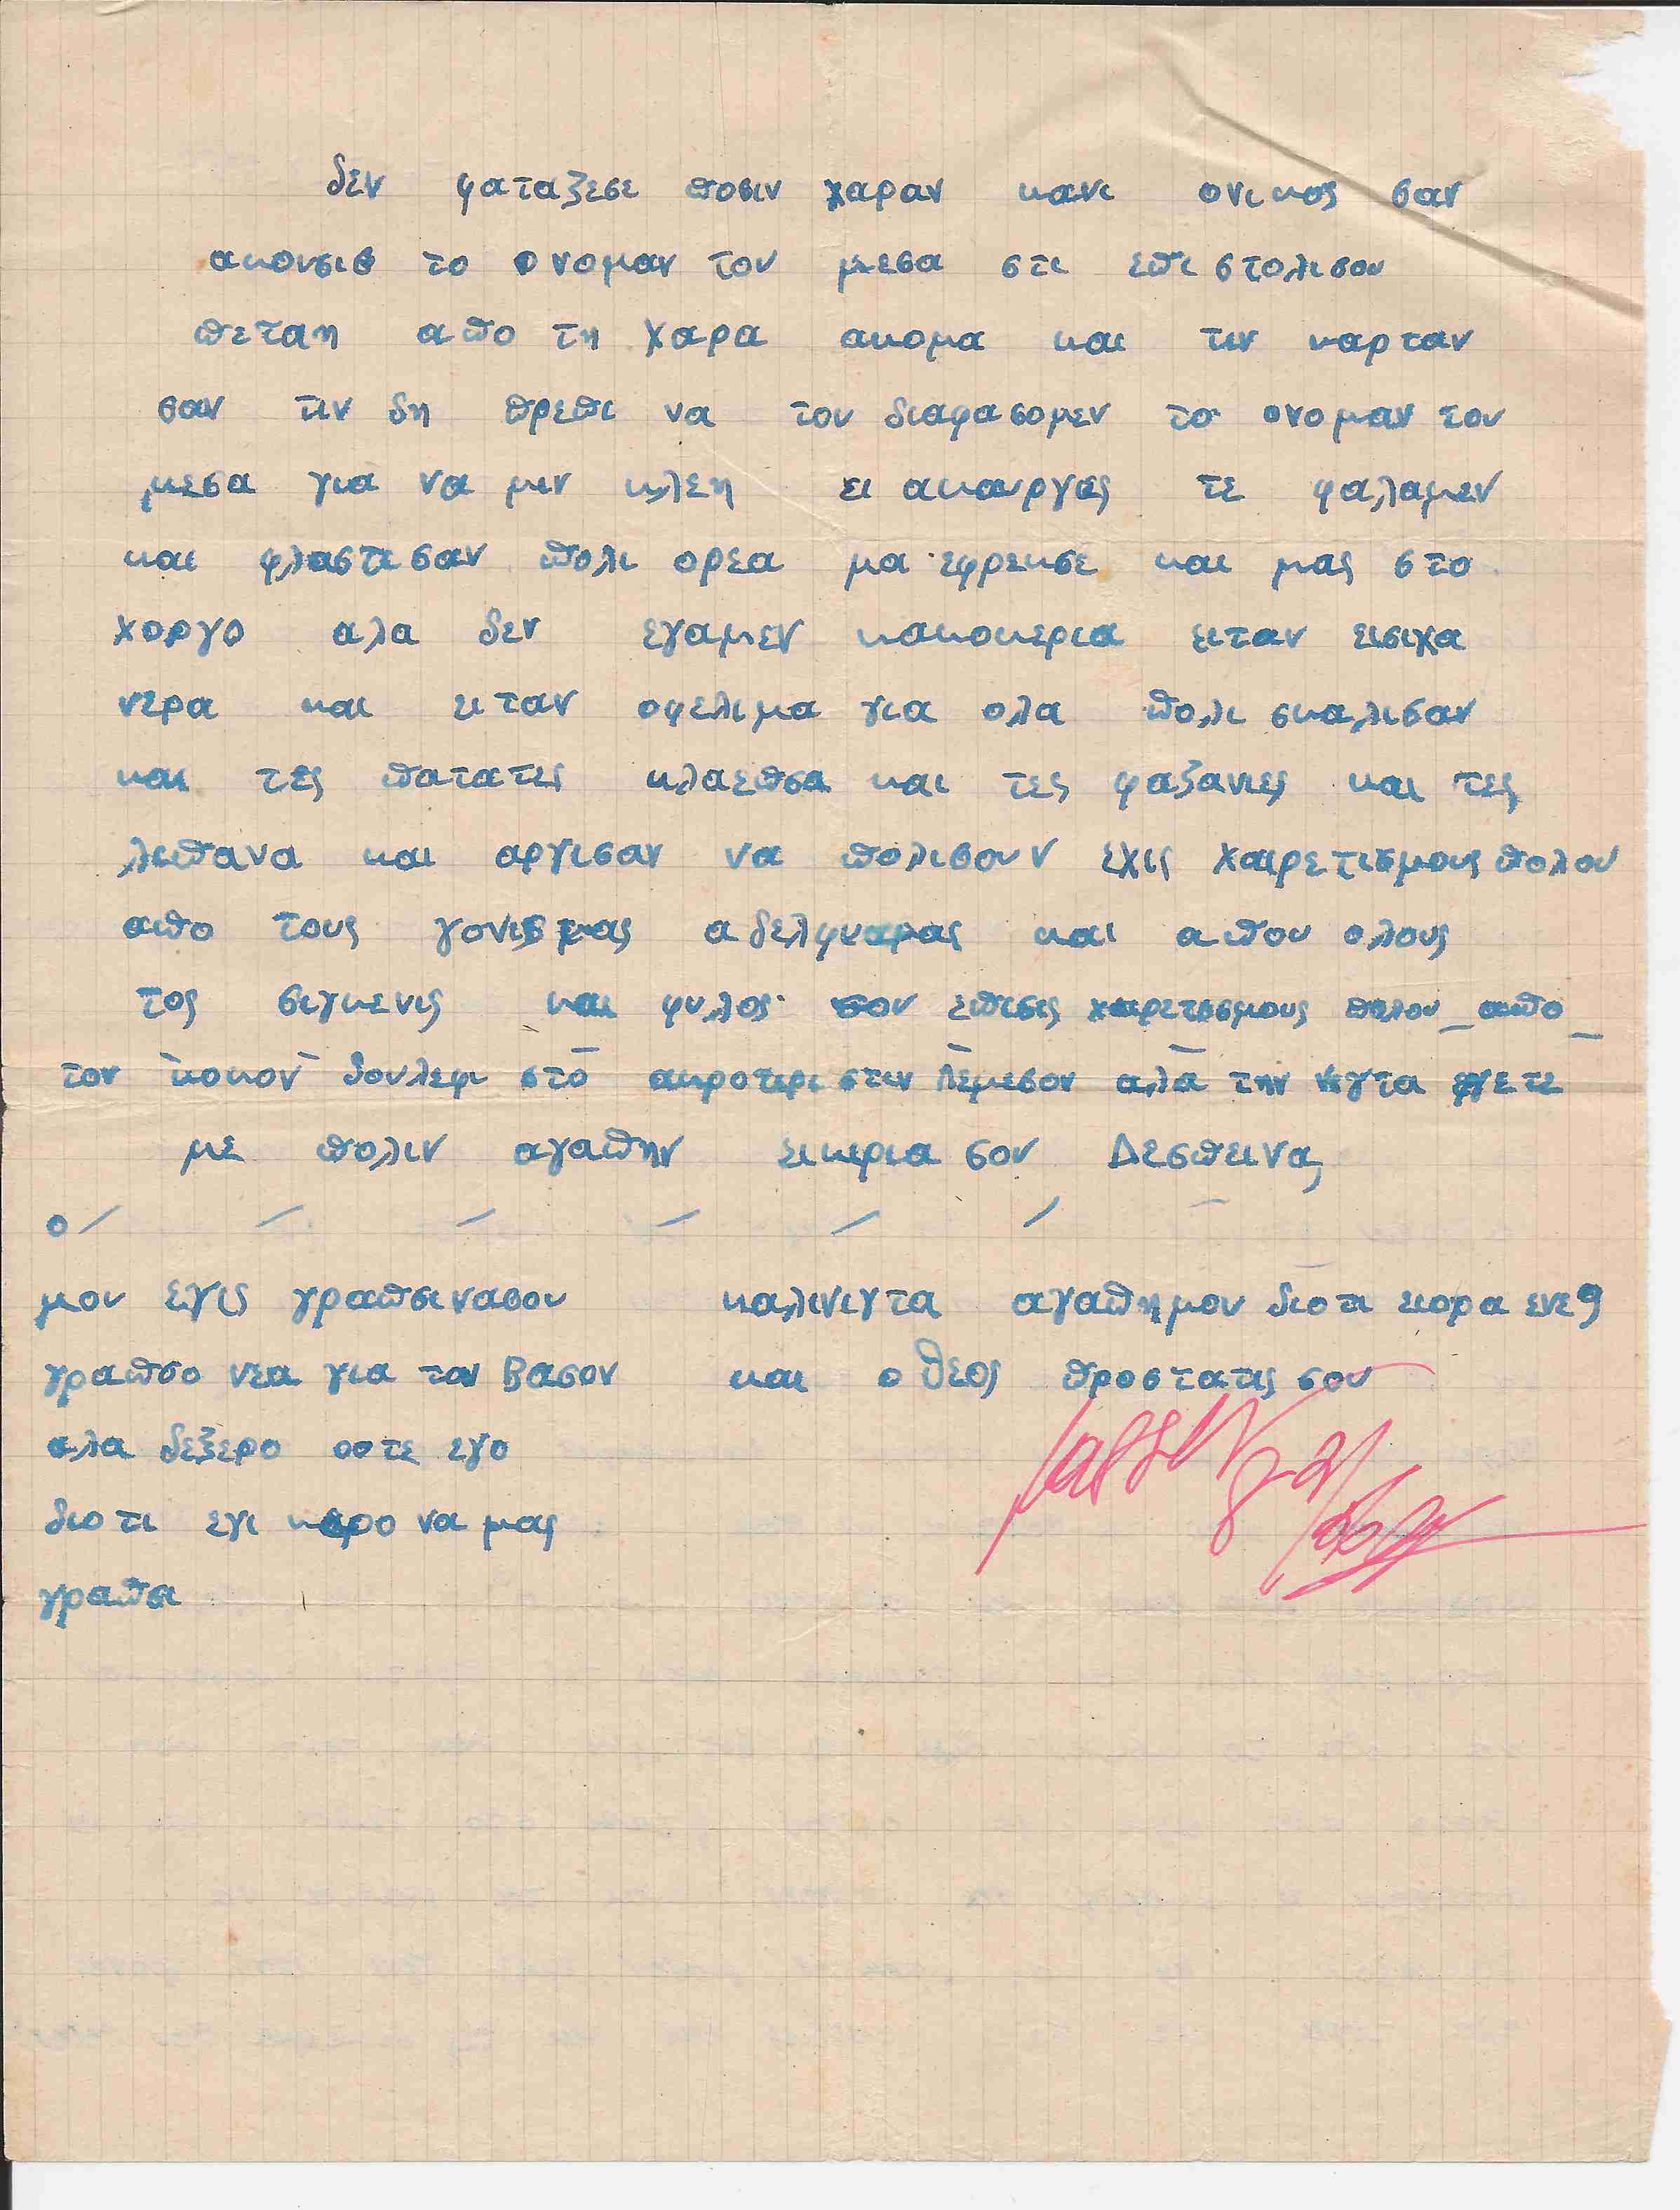 δεν φαταζεσε ποσιν χαραν κανι ονικος σαν
ακουσιs το ονομαν του μεσα στι επιστολισου
πεταη απο τη χαρα ακομα και τιν καρταν
σαν τιν δη πρεπι να του διαφασομεν το ονομαν του
μεσα για να μιν κλεη ει ακουργες τε φαλαμεν
και φλαστισαν πολι ορεα μα εφρεκσε και μας στο
χοργο αλα δεν εγαμεν κακοκερια ειταν εισιχα
νερα και ειταν οφελιμα για ολα πολι σκαλισαν
και τες πατατες κλαεπσα και τες φαζανιες και τες
λεπανα και αργισαν να πολισουν εχις χαιρετισμους πολου
απο τους γονις μας αδελφια μας και απου ολους
τος σιγκενις και φυλος σου επισις χαιρετισμους πολου απο
τον κοκον δουλεφι στο ακροτιρι στιν Λεμεσον αλα την νιγτα
με πολιν αγαπην ει κερια σου Δεσπεινα
ο/ / / / / /
μου εγις γραπσι νασου καλινιγτα αγαπημου διοτι ειορα ενε 9
γραπσο νεα για τον Βασον και ο θεος προστατις σου
αλα δεξερο οοτε εγο
διοτι εγι κερο να μας
γραπσι